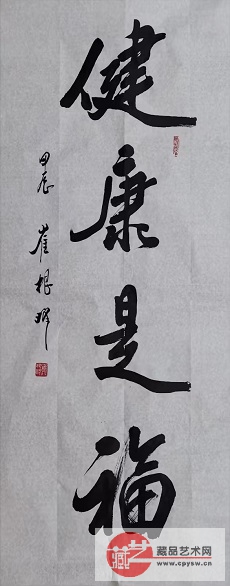 健康是福
甲辰
崔根晔
藏艺
藏品艺术网
www.cpysw.cn